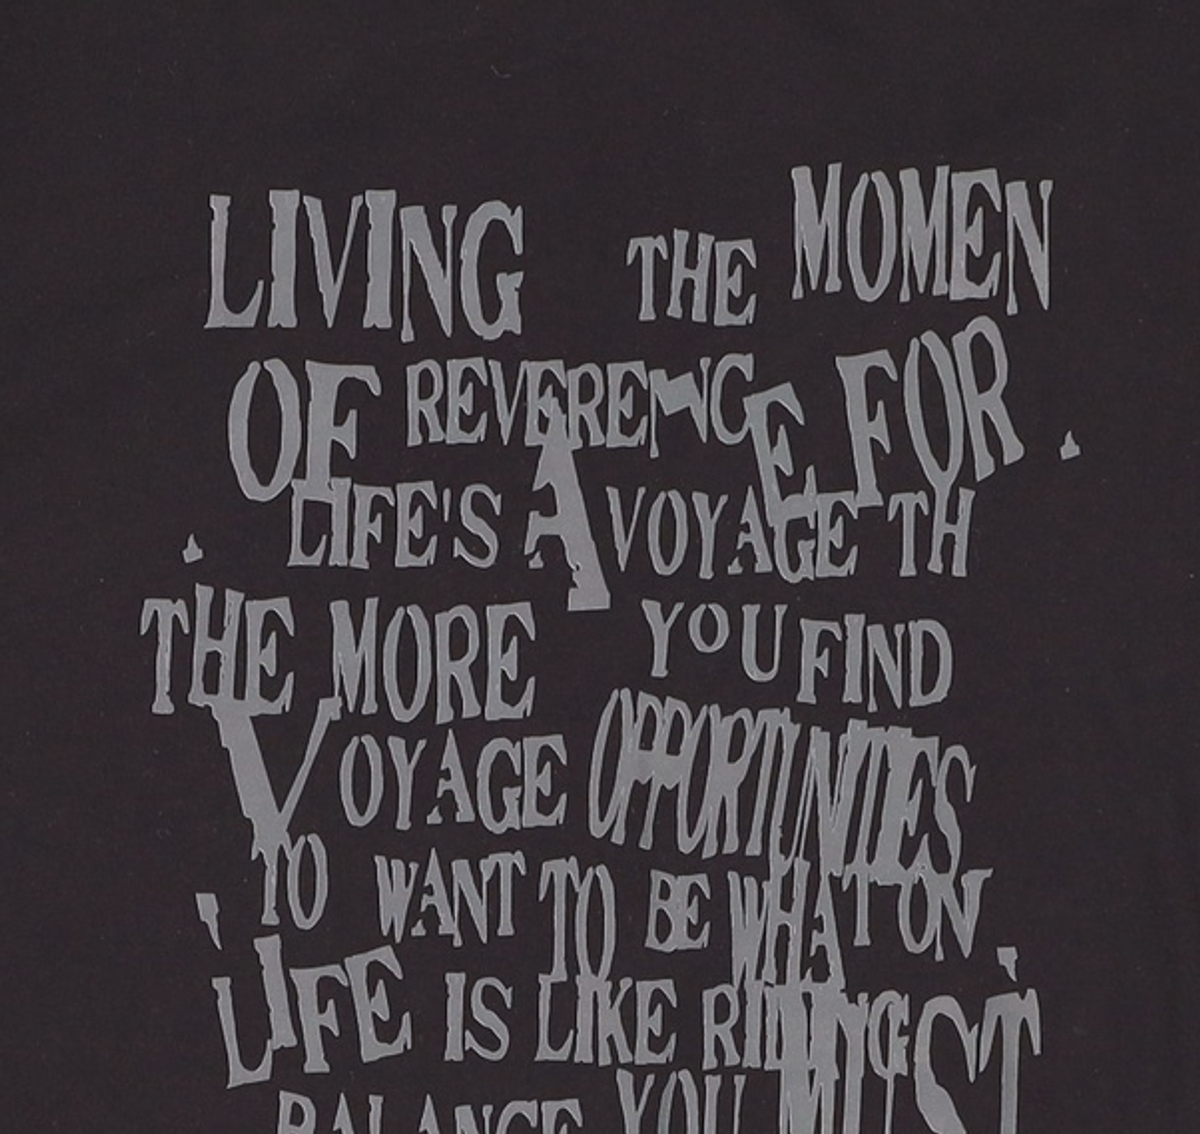 LIVING THE MOMEN
OF REVERENCE FOR
LIFE'S A VOYAGE TH
THE MORE YOU FIND
VOYAGE OPPORTUNITIES
TO WANT TO BE WHAT ON
LIFE IS LIKE RIDING
BALANCE YOU MUST